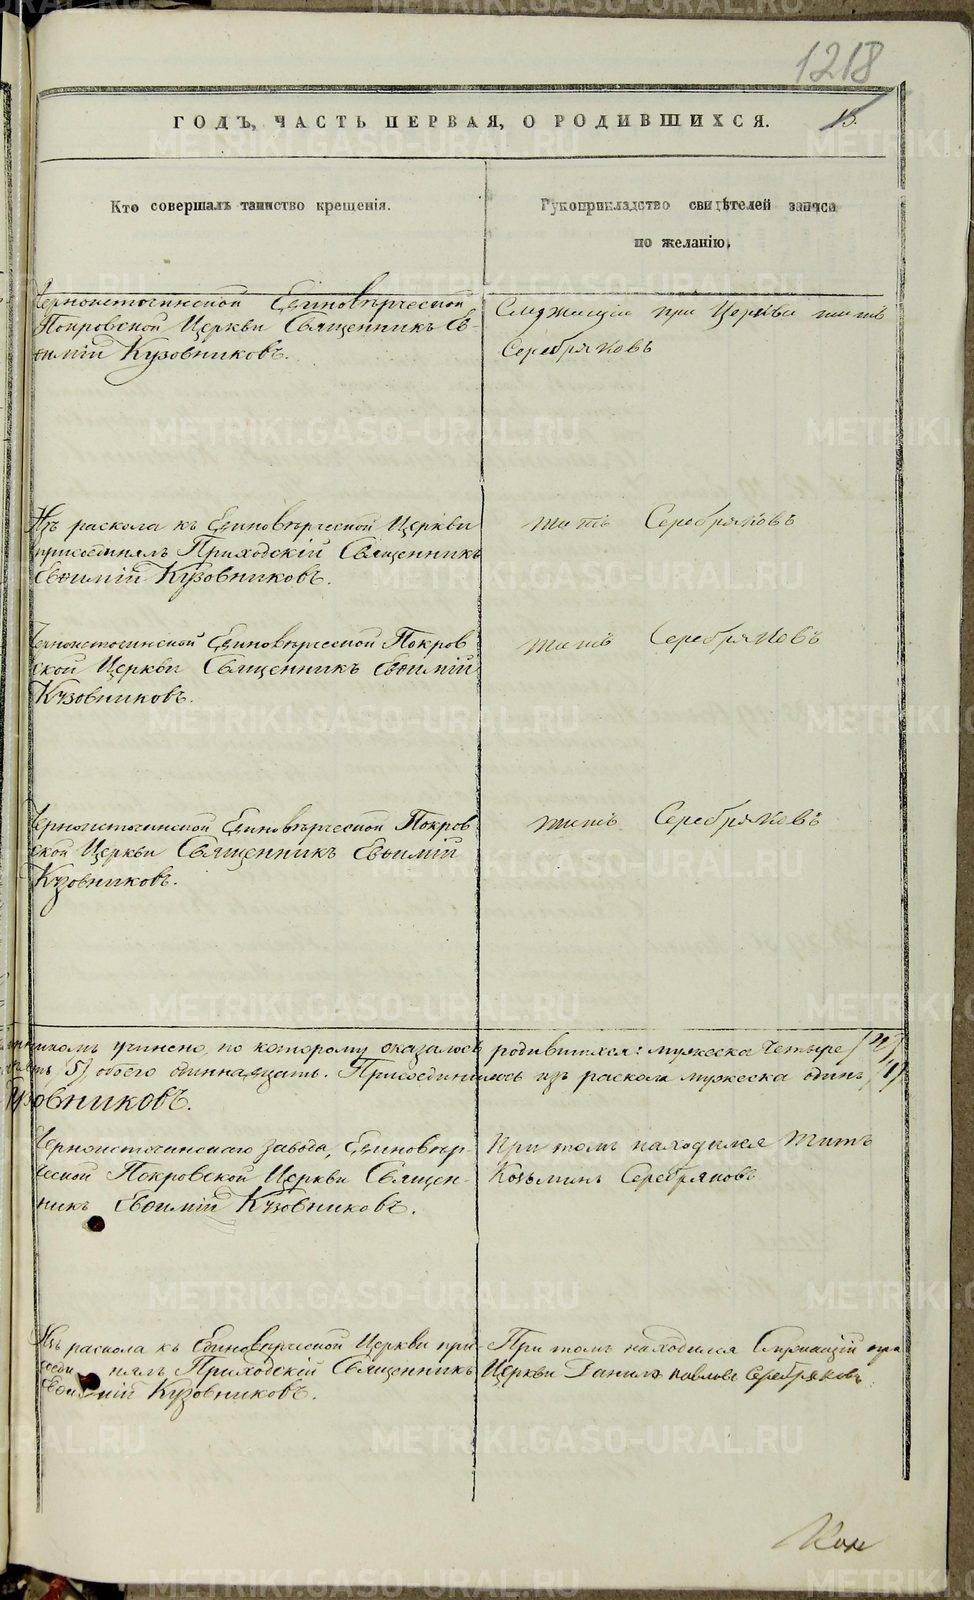 1218
ГОДЪ, ЧАСТЬ ПЕРВАЯ, О РОДИВШИХСЯ.
13.
Кто совершалъ таинство крещенія.
Рукоприкладство свидѣтелей записи
по желанію.
Черноисточинской Единовѣрческой
Покровской Церкви Священникъ Ев-
ѳимій Кузовниковъ.
Служащій при Церкви Титъ
Серебряковъ
Изъ раскола къ Единовѣрческой Церкви
присоединялъ Приходскій Священникъ
Евѳимій Кузовниковъ.
Титъ Серебряковъ
Черноисточинской Единовѣрческой Покров
ской Церкви Священникъ Евѳимій
Кузовниковъ.
Титъ Серебряковъ
Черноисточинской Единовѣрческой Покров
ской Церкви Священникъ Евѳимій
Кузовниковъ.
Титъ Серебряковъ
учинено, по которому оказалось родившихся: мужеска Четыре
5) обоего одиннадцать. Присоединилось изъ раскола мужеска одинъ /1/
Кузовниковъ.
Черноисточинскаго завода, Единовѣр-
ческой Покровской Церкви Священ-
никъ Евѳимій Кузовниковъ.
При томъ находился Титъ
Козьминъ Серебряковъ
Изъ раскола къ Единовѣрческой Церкви при-
соединялъ Приходскій Священникъ
Евѳимій Кузовниковъ.
При томъ находился Служащій при
Церкви Данило Павловъ Серебряковъ.
METRIKI.GASO-URAL.RU